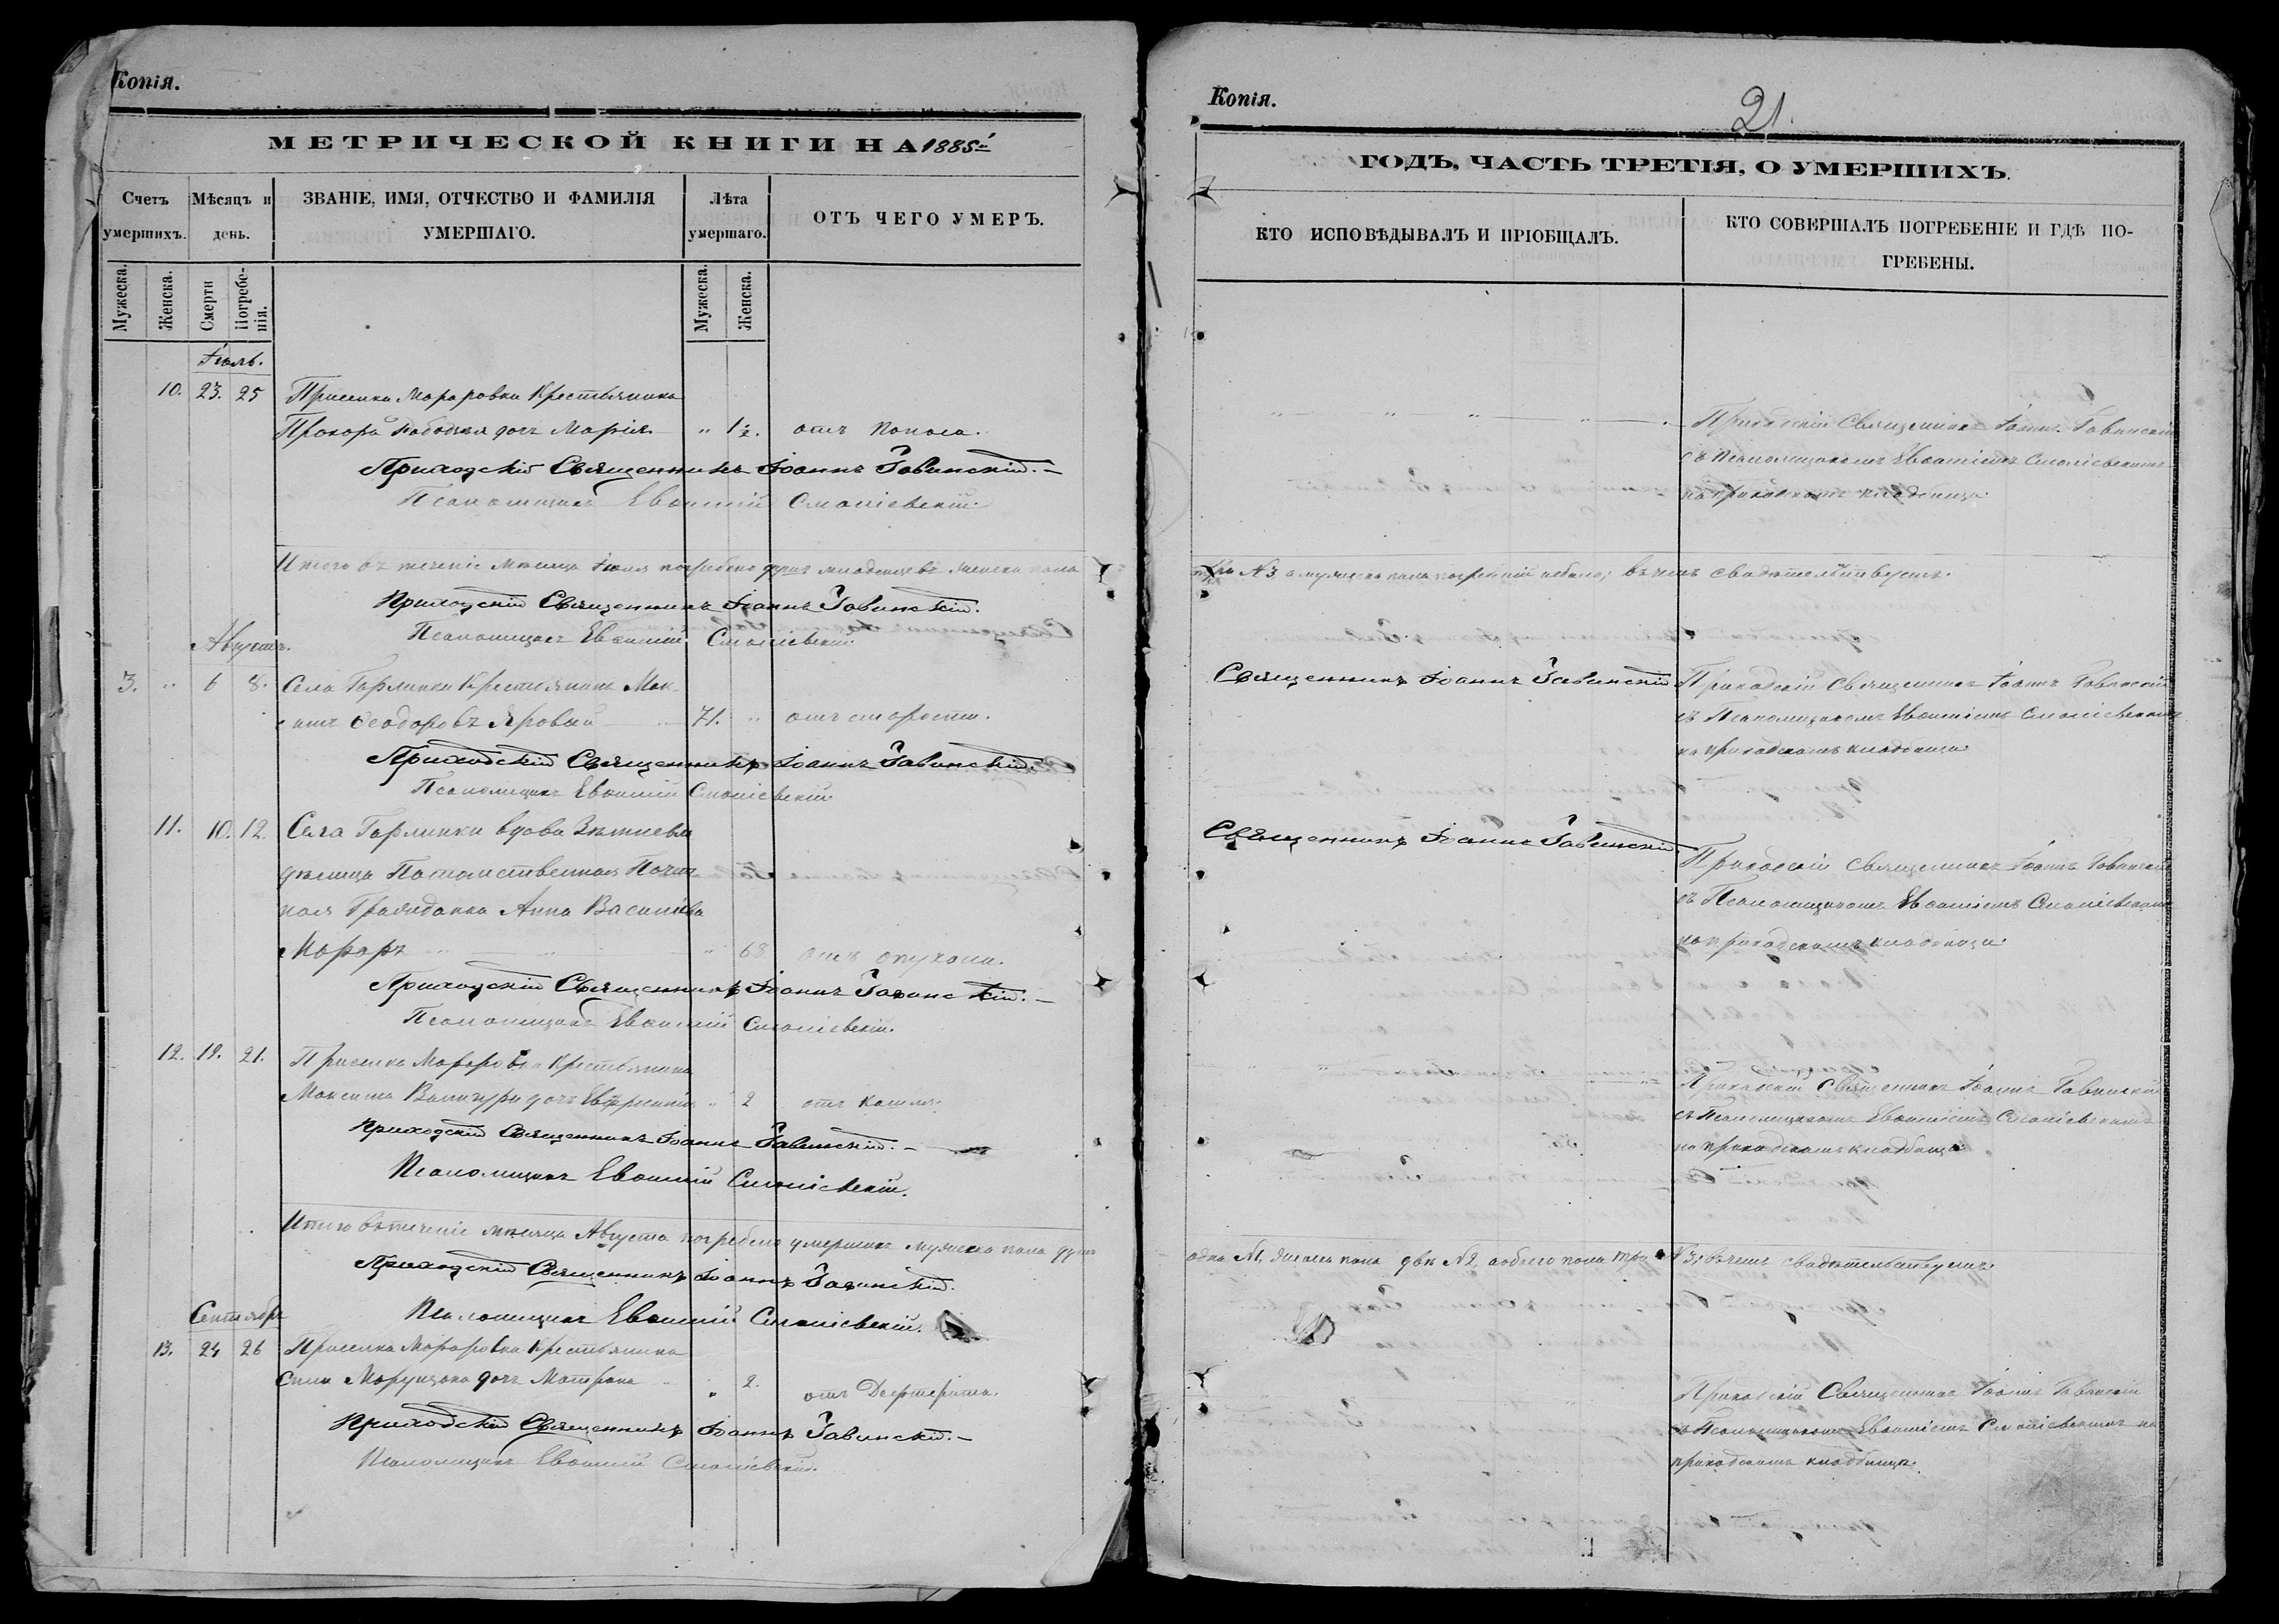 Копія.
МЕТРИЧЕСКОЙ КНИГИ НА 1885й
Счетъ умершихъ.
Мѣсяцъ и день.
ЗВАНІЕ, ИМЯ, ОТЧЕСТВО И ФАМИЛІЯ УМЕРШАГО.
Лѣта умершаго.
ОТЪ ЧЕГО УМЕРЪ.
Мужеска.
Женска.
Смерти
Погребенія.
Мужеска.
Женска.
Іюль.
10. 23. 25 Приселка Мораровки Крестьянина
Прохора дочь Марія " 1½. отъ поноса.
Приходскій Священникъ Іоаннъ Гавинскій.
Псаломщикъ Евѳимій Смолісвскій
Итого въ теченіе мѣсяца Іюля погребено душъ младенцевъ женска пола
Приходскій Священникъ Іоаннъ Гавинскій.
Псаломщикъ Евѳимій Смолісвскій
Августъ.
3. " 6 8. Села Гарлинки Крестьянинъ Мак-
симъ Ѳеодоровъ Яровый 71. " отъ старости.
Приходскій Священникъ Іоаннъ Гавинскій.
Псаломщикъ Евѳимій Смолісвскій
11. 10. 12. Села Гарлинки вдова
дѣлица Потомственная Почет-
ная Гражданка Анна Василіева
Мораръ " 68. отъ опухоли.
Приходскій Священникъ Іоаннъ Гавинскій.
Псаломщикъ Евѳимій Смолісвскій.
12. 19. 21. Приселка Мораровка Крестьянина
Максима дочь Евфросинія " 2 отъ кашля
Приходскій Священникъ Іоаннъ Гавинскій.
Псаломщикъ Евѳимій Смолісвскій.
Итого въ теченіе мѣсяца Августа погребено умершихъ мужеска пола душъ
Приходскій Священникъ Іоаннъ Гавинскій.
Псаломщикъ Евѳимій Смолісвскій.
Сентябрь
13. 24 26 Приселка Мораровка Крестьянина
дочь Матрона " 2. отъ Дифтерита.
Приходскій Священникъ Іоаннъ Гавинскій.
Псаломщикъ Евѳимій Смолісвскій.
Копія.
21.
ГОДЪ, ЧАСТЬ ТРЕТІЯ, О УМЕРШИХЪ.
КТО ИСПОВѢДЫВАЛЪ И ПРІОБЩАЛЪ.
КТО СОВЕРШАЛЪ ПОГРЕБЕНІЕ И ГДѢ ПО-
ГРЕБЕНЫ.
Приходскій Священникъ Іоаннъ Гавинскій
съ Псаломщикомъ Евѳиміемъ Смолісвскимъ
на приходскомъ кладбищѣ.
три №3 а мужеска пола погребеній небыло; въ чемъ свидѣтельствуемъ.
Священникъ Іоаннъ Гавинскій
Приходскій Священникъ Іоаннъ Гавинскій
съ Псаломщикомъ Евѳиміемъ Смолісвскимъ
на приходскомъ кладбищѣ.
Священникъ Іоаннъ Гавинскій
Приходскій Священникъ Іоаннъ Гавинскій
съ Псаломщикомъ Евѳиміемъ Смолісвскимъ
на приходскомъ кладбищѣ.
Приходскій Священникъ Іоаннъ Гавинскій
съ Псаломщикомъ Евѳиміемъ Смолісвскимъ
на приходскомъ кладбищѣ.
одна №1, женска пола двѣ №2, а обоего пола три №3; въ чемъ свидѣтельствуемъ.
Приходскій Священникъ Іоаннъ Гавинскій
съ Псаломщикомъ Евѳиміемъ Смолісвскимъ на
приходскомъ кладбищѣ.